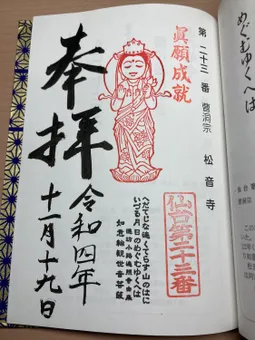 第二十三番 曹洞宗 松音寺
眞願成就
仙台第二十三番
奉拝
令和四年
十一月十九日
へだてじな遍くてらす山のはに
いづる月日のめぐむゆくへは
如意輪観世音菩薩
めぐむゆくへは